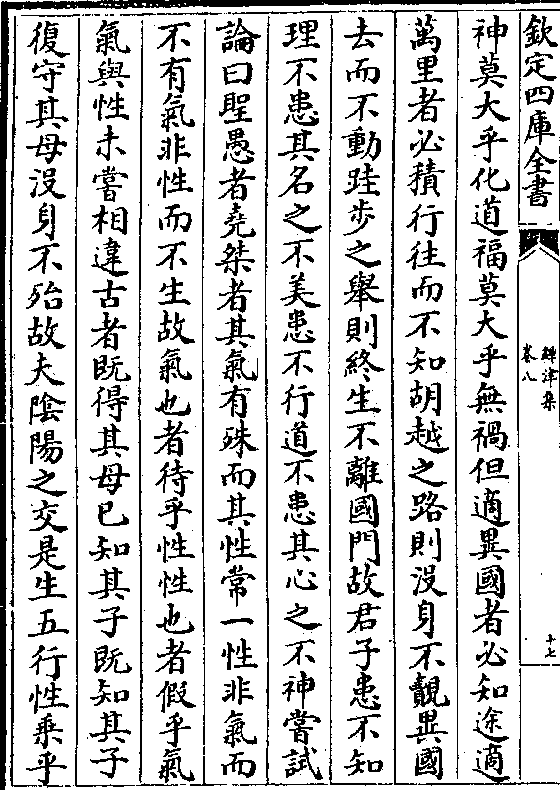 欽定四庫全書
鐔津集
卷八
十七
神莫大乎化道福莫大乎無禍但適異國者必知途適
萬里者必積行往而不知胡越之路則沒身不覿異國
去而不動跬步之舉則終生不離國門故君子患不知
理不患其名之不美患不行道不患其心之不神嘗試
論曰聖愚者堯桀者其氣有殊而其性常一性非氣而
不有氣非性而不生故氣也者待乎性性也者假乎氣
氣與性未嘗相違古者既得其母已知其子既知其子
復守其母沒身不殆故夫陰陽之交是生五行性乘乎